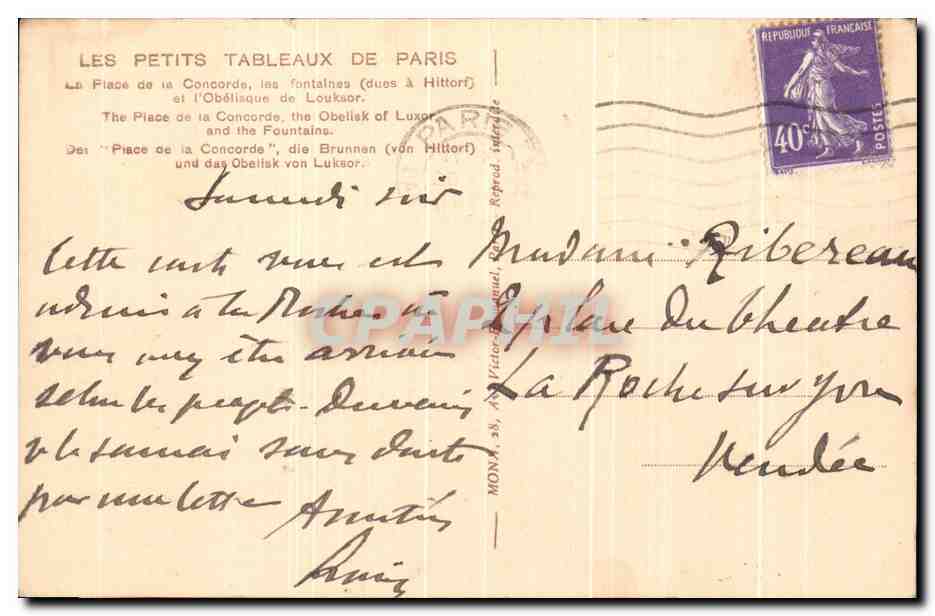 LES PETITS TABLEAUX DE PARIS
La Place de la Concorde, les fontaines (dues à Hittorf)
et l'Obélisque de Louksor.
The Place de la Concorde, the Obelisk of Luxor
and the Fountains.
Der "Place de la Concorde", die Brunnen (von Hittorf)
und das Obelisk von Luksor.
PARIS
REPUBLIQUE FRANÇAISE
40c
POSTES
Samedi soir
Cette carte vous est
adressée à la Roche où
vous être arrivés
selon les projets.
je le saurai sans doute
par une lettre
Amitiés
MONA, 28, Av. Victor-Emmanuel, Paris Reprod. interdite
Madame Ribereau
place du théâtre
La Roche sur Yon
Vendée
CPAPHIL